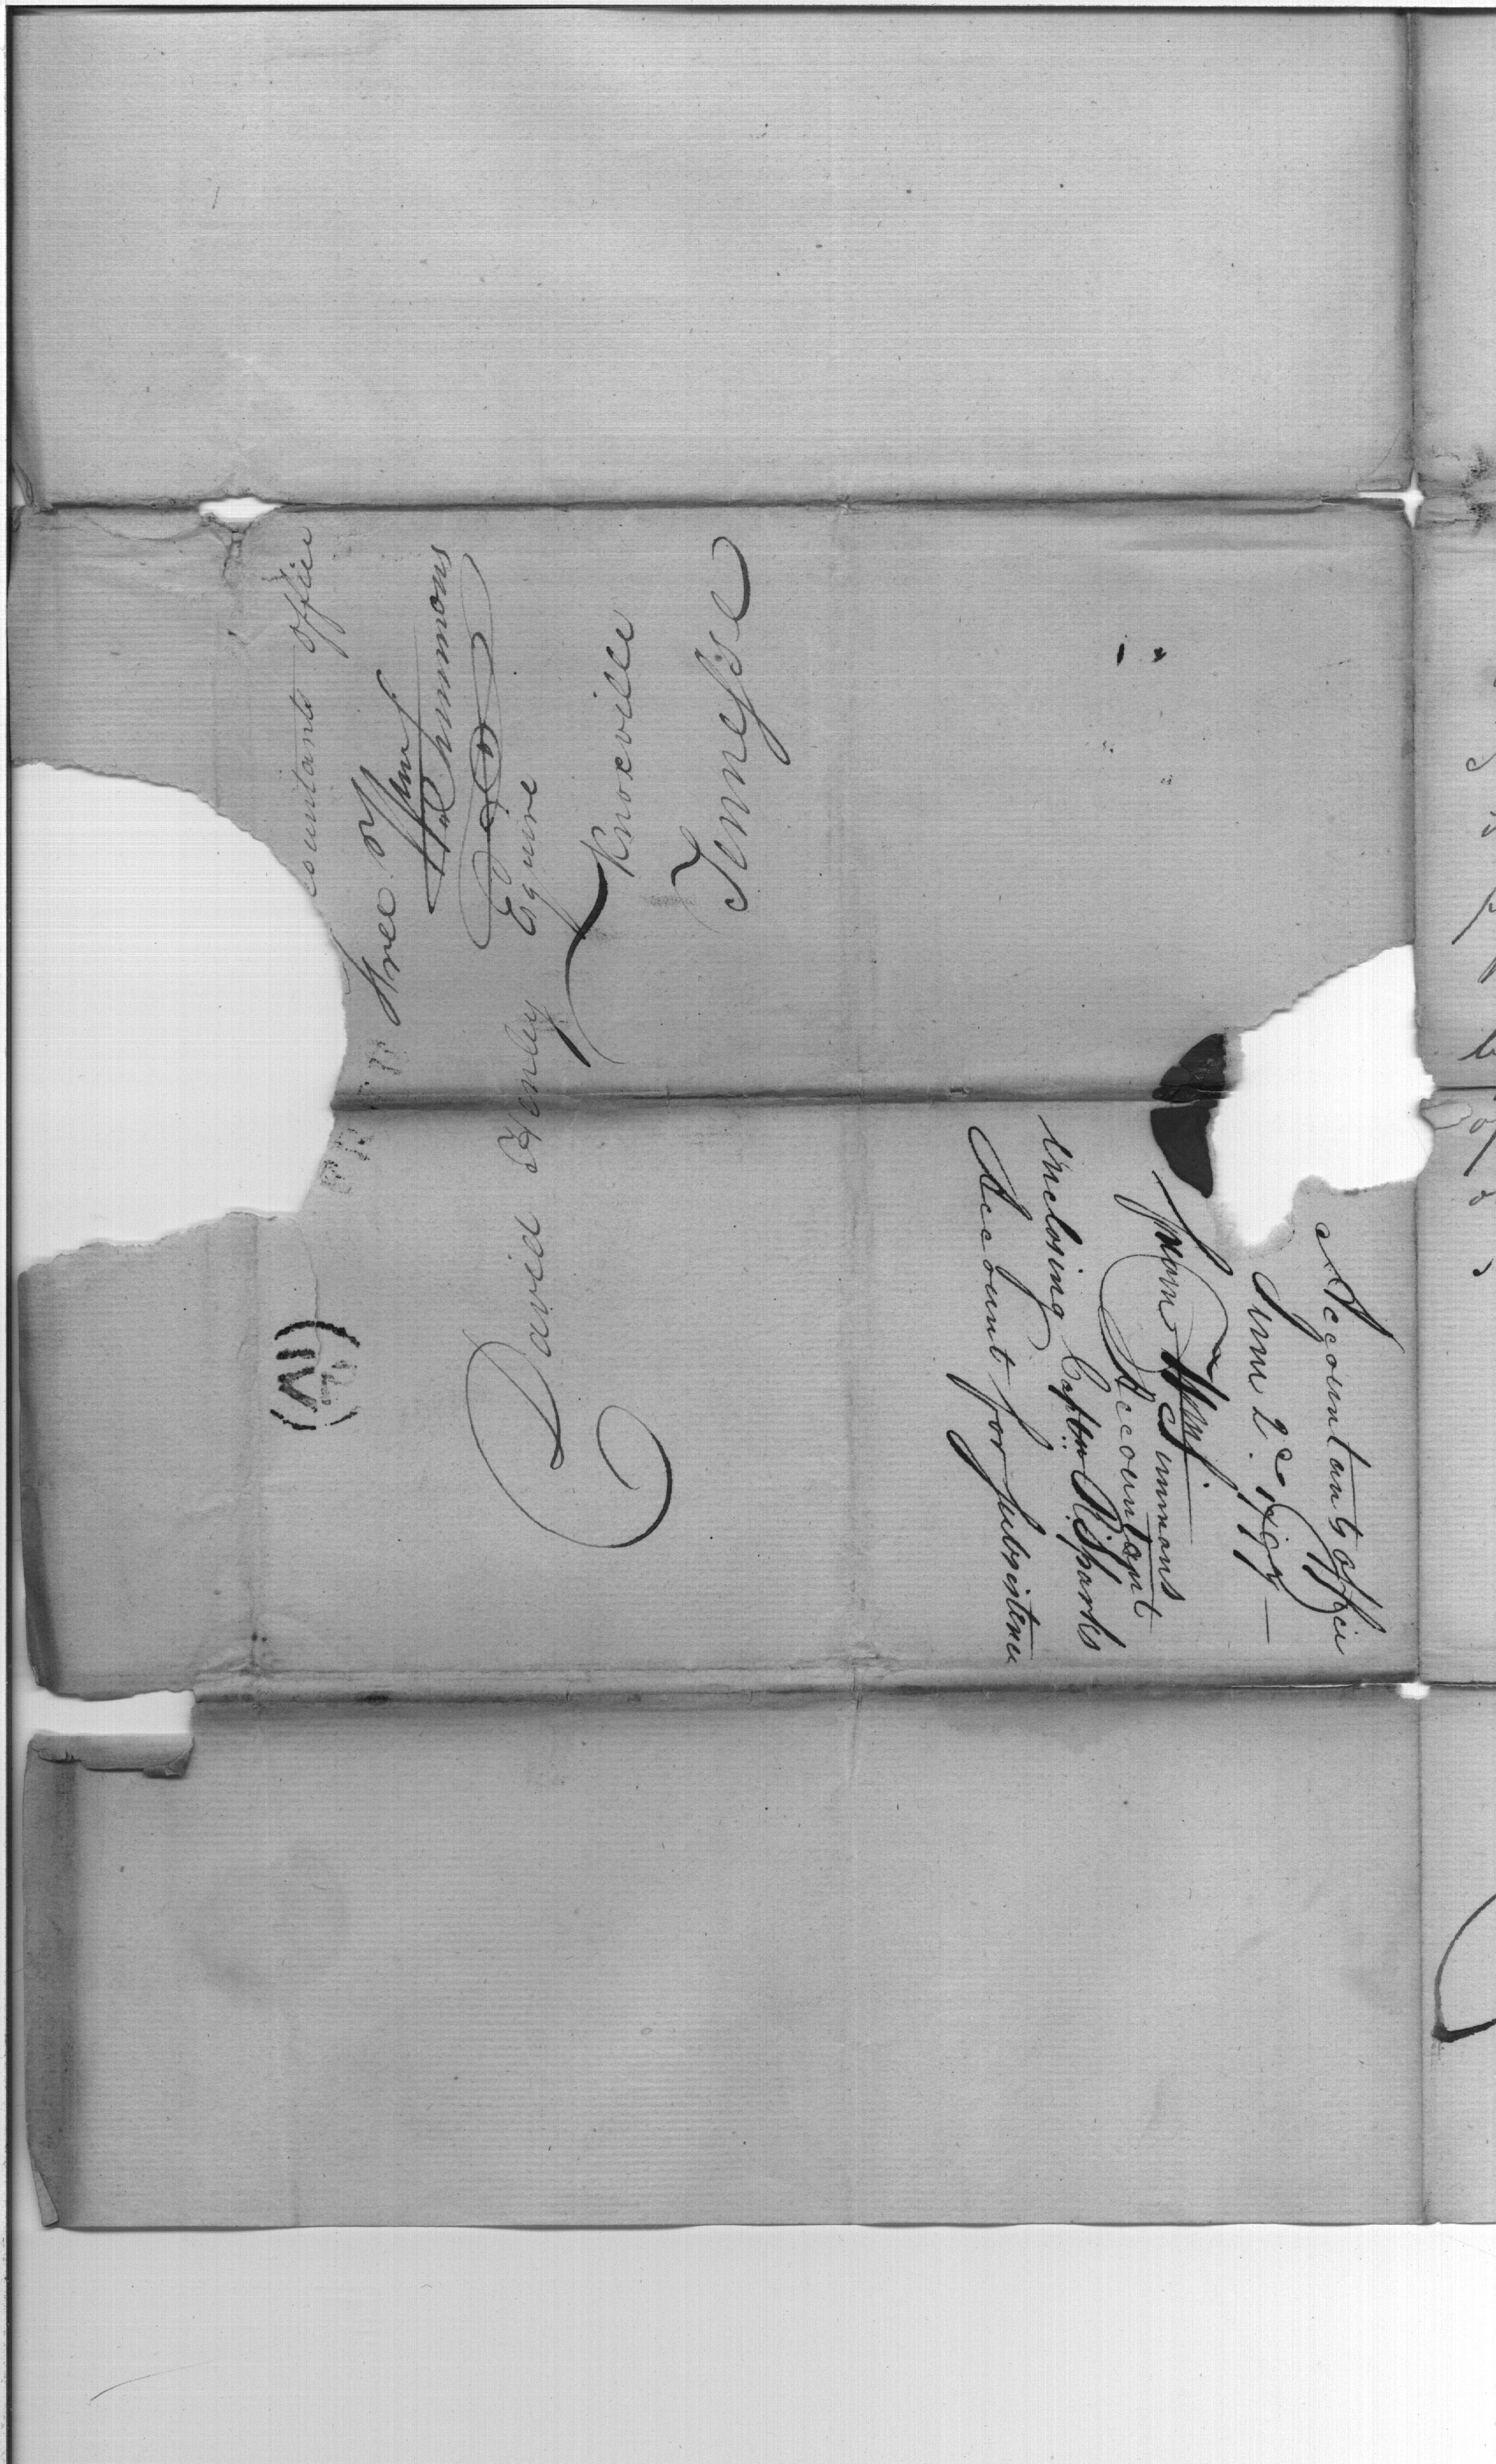 countants office
Free
Wm Simmons
David Henley Equire
Knoxville
Tennessee
FREE
Accountants office
June 2d 1797
from Wm Simmons
Accountant
Enclosing Captn R. Sparks
Account for Subsistence